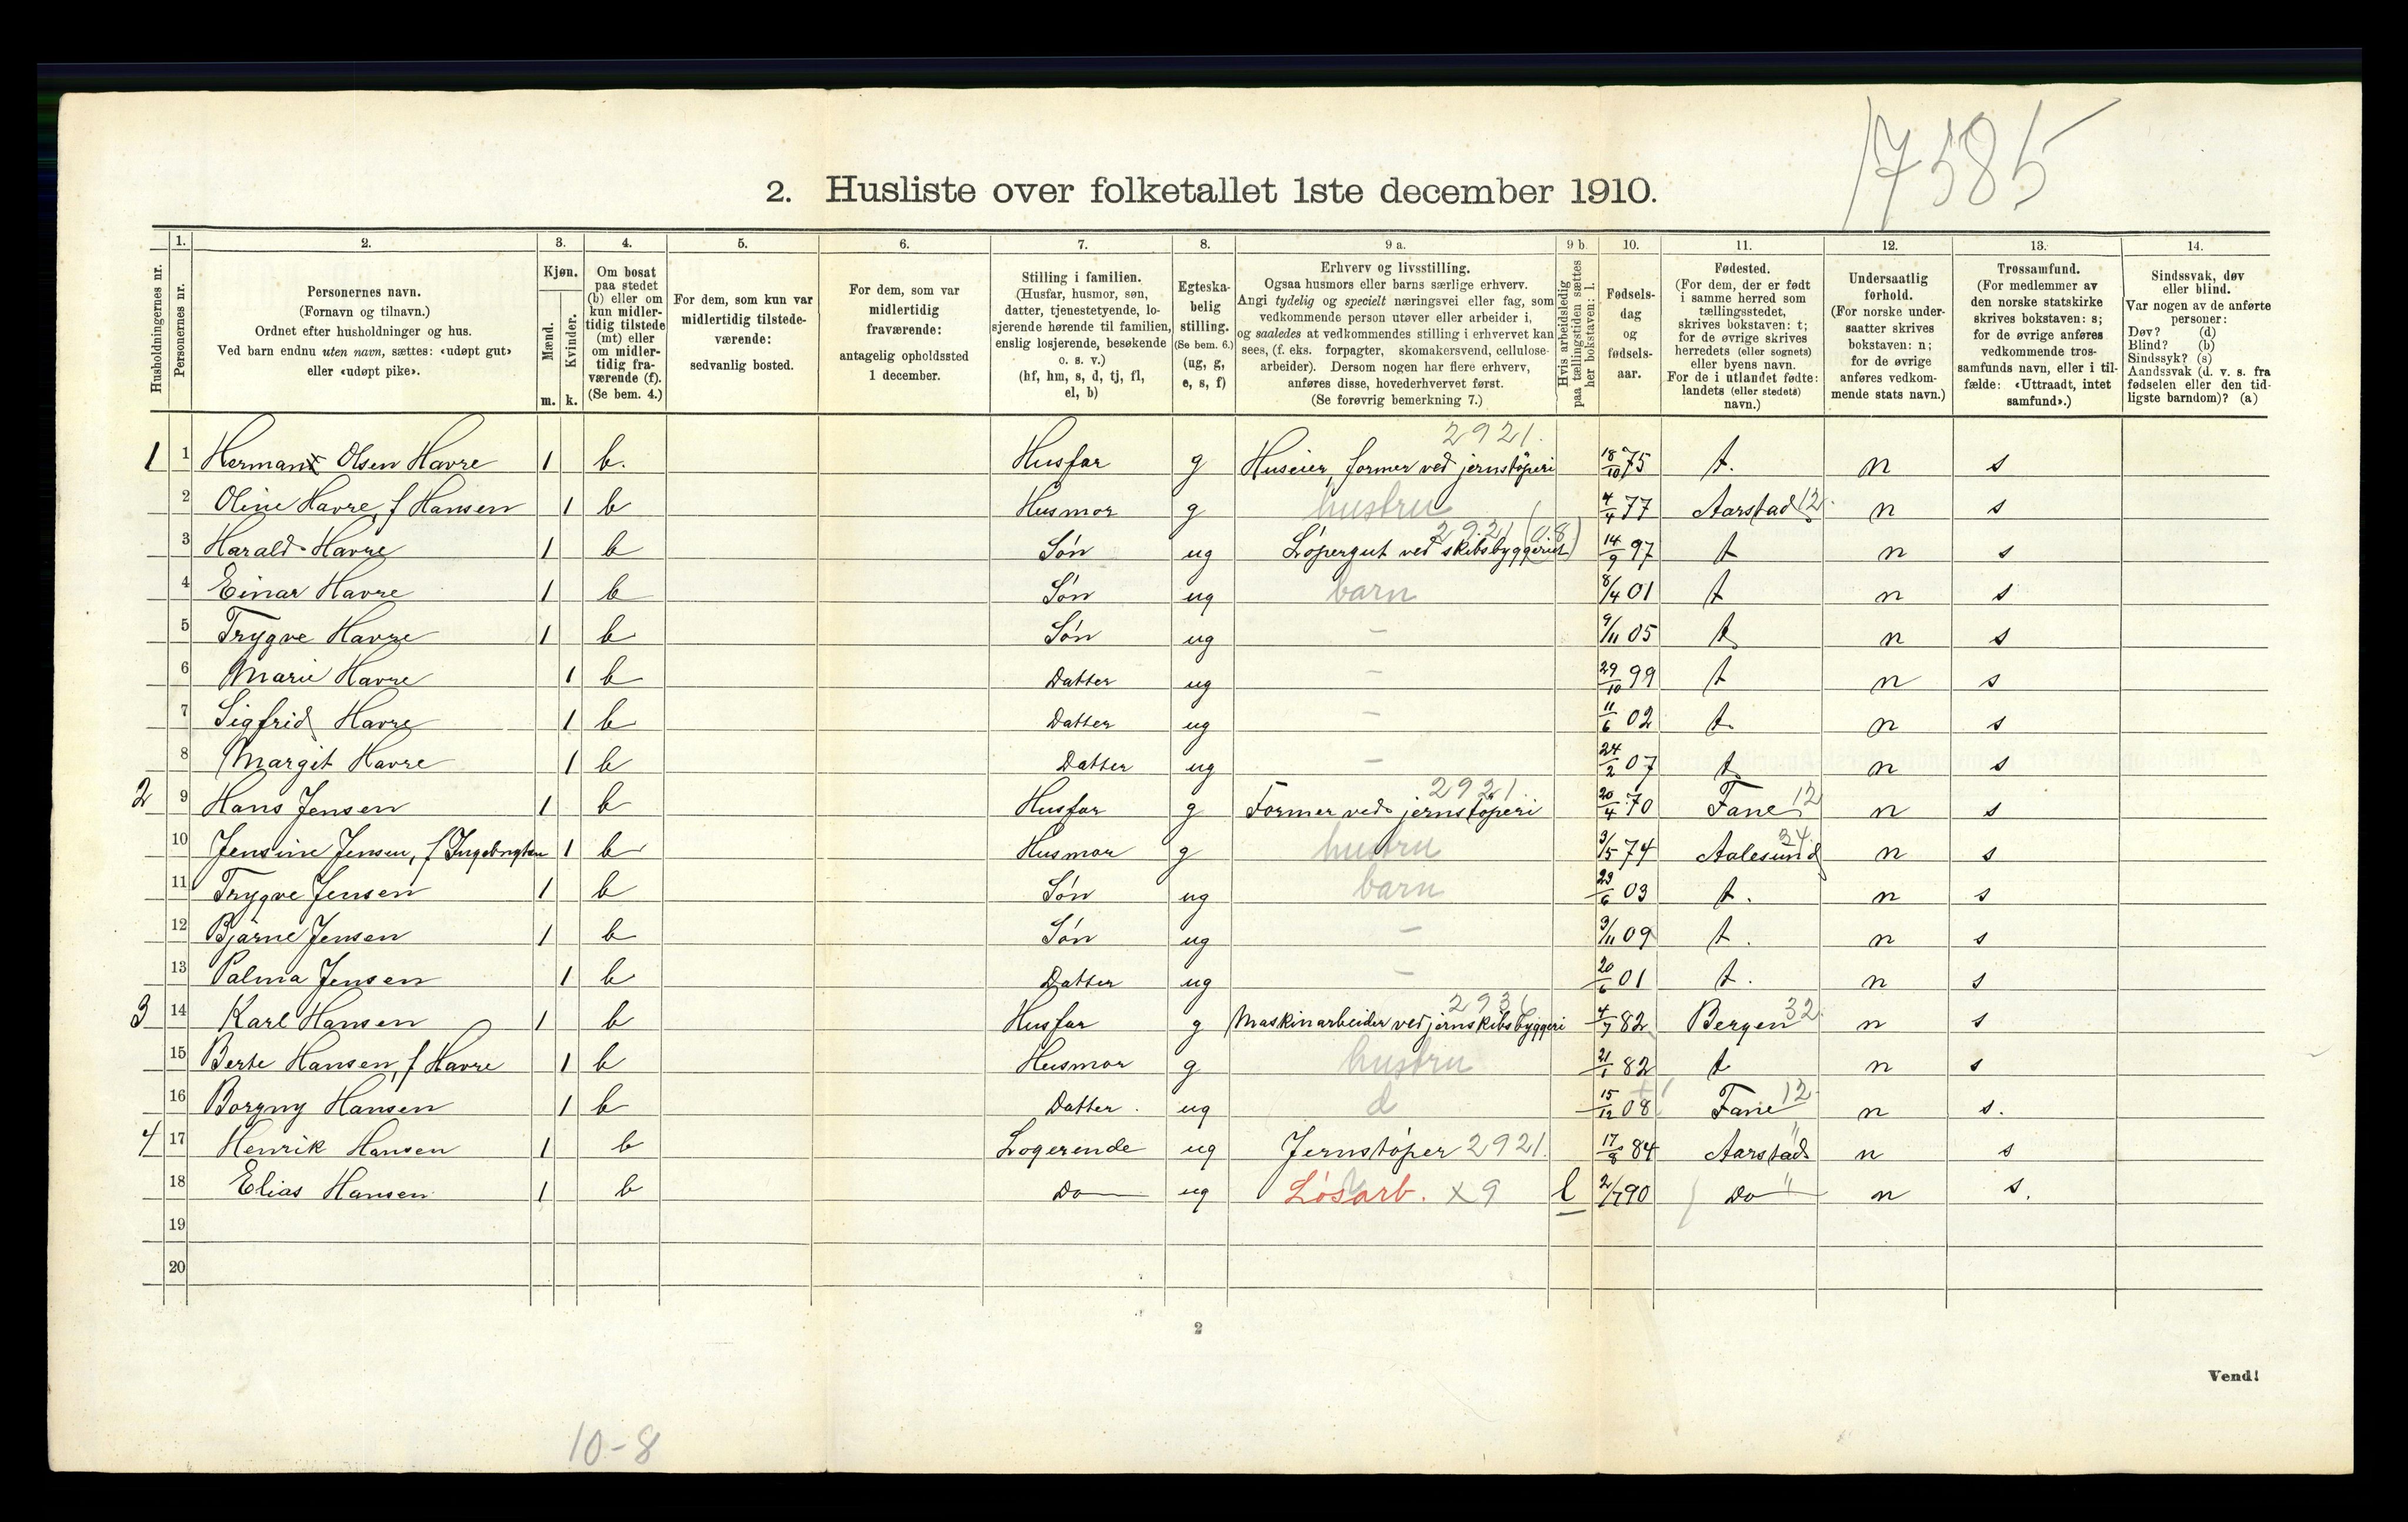 17585
2. Husliste over folketallet 1ste december 1910.
Husholdningernes nr.
1. Personernes nr.
2. Personernes navn. (Fornavn og tilnavn.) Ordnet efter husholdninger og hus. Ved barn endnu uten navn, sættes: «udøpt gut» eller «udøpt pike».
3. Kjøn. Mænd. Kvinder. m. k.
4. Om bosat paa stedet (b) eller om kun midler-tidig tilstede (mt) eller om midler-tidig fra-værende (f). (Se bem. 4.)
5. For dem, som kun var midlertidig tilstede-værende: sedvanlig bosted.
6. For dem, som var midlertidig fraværende: antagelig opholdssted 1 december.
7. Stilling i familien. (Husfar, husmor, søn, datter, tjenestetyende, lo-sjerende hørende til familien, enslig losjerende, besøkende o. s. v.) (hf, hm, s, d, tj, fl, el, b)
8. Egteska-belig stilling. (Se bem. 6.) (ug, g, e, s, f)
9 a. Erhverv og livsstilling. Ogsaa husmors eller barns særlige erhverv. Angi tydelig og specielt næringsvei eller fag, som vedkommende person utøver eller arbeider i, og saaledes at vedkommendes stilling i erhvervet kan sees, (f. eks. forpagter, skomakersvend, cellulose-arbeider). Dersom nogen har flere erhverv, anføres disse, hovederhvervet først. (Se forøvrig bemerkning 7.)
9 b. Hvis arbeidsledig paa tællingstiden sættes her bokstaven: l.
10. Fødsels-dag og fødsels-aar.
11. Fødested. (For dem, der er født i samme herred som tællingsstedet, skrives bokstaven: t; for de øvrige skrives herredets (eller sognets) eller byens navn. For de i utlandet fødte: landets (eller stedets) navn.)
12. Undersaatlig forhold. (For norske under-saatter skrives bokstaven: n; for de øvrige anføres vedkom-mende stats navn.)
13. Trossamfund. (For medlemmer av den norske statskirke skrives bokstaven: s; for de øvrige anføres vedkommende tros-samfunds navn, eller i til-fælde: «Uttraadt, intet samfund».)
14. Sindssvak, døv eller blind. Var nogen av de anførte personer: Døv? (d) Blind? (b) Sindssyk? (s) Aandssvak (d. v. s. fra fødselen eller den tid-ligste barndom)? (a)
1 1 Herman Olsen Havre 1 b. Husfar g Huseier, former ved jernstöperi 2921. 18/10 75 t. n s
2 Oline Havre, f Hansen 1 b Husmor g hustru 4/4 77 Aarstad 12 n s
3 Harald Havre 1 b Søn ug Löpergut ved skibsbyggeriet 2921 (08) 14/9 97 t n s
4 Einar Havre 1 b Søn ug barn 8/4 01 t n s
5 Trygve Havre 1 b Søn ug – 9/11 05 t n s
6 Marie Havre 1 b Datter ug – 29/10 99 t n s
7 Sigfrid Havre 1 b Datter ug – 11/6 02 t. n s
8 Margit Havre 1 b Datter ug – 24/2 07 t. n s
2 9 Hans Jensen 1 b Husfar g Former ved jernstöperi 2921. 20/4 70 Fane 12 n s
10 Jensine Jensen, f 1 b Husmor g hustru 3/5 74 Aalesund 34 n s
11 Trygve Jensen 1 b Søn ug barn 23/6 03 t. n s
12 Bjarne Jensen 1 b Søn ug – 3/11 09 t. n s
13 Palma Jensen 1 b Datter ug – 20/6 01 t. n s
3 14 Karl Hansen 1 b Husfar g Maskinarbeider ved jernskibsbyggeri 2931 4/7 82 Bergen 32 n s
15 Berte Hansen, f Havre 1 b Husmor g hustru 21/1 82 t n s
16 Borgny Hansen 1 b Datter. ug d 15/12 08 Fane 12 n s.
4 17 Henrik Hansen 1 b Logerende ug Jernstöper 2921. 17/8 84 Aarstad " n s
18 Elias Hansen 1 b Do ug Lösarb. x9 l 2/7 90 Do " n s.
19
20
2
Vend!
10-8